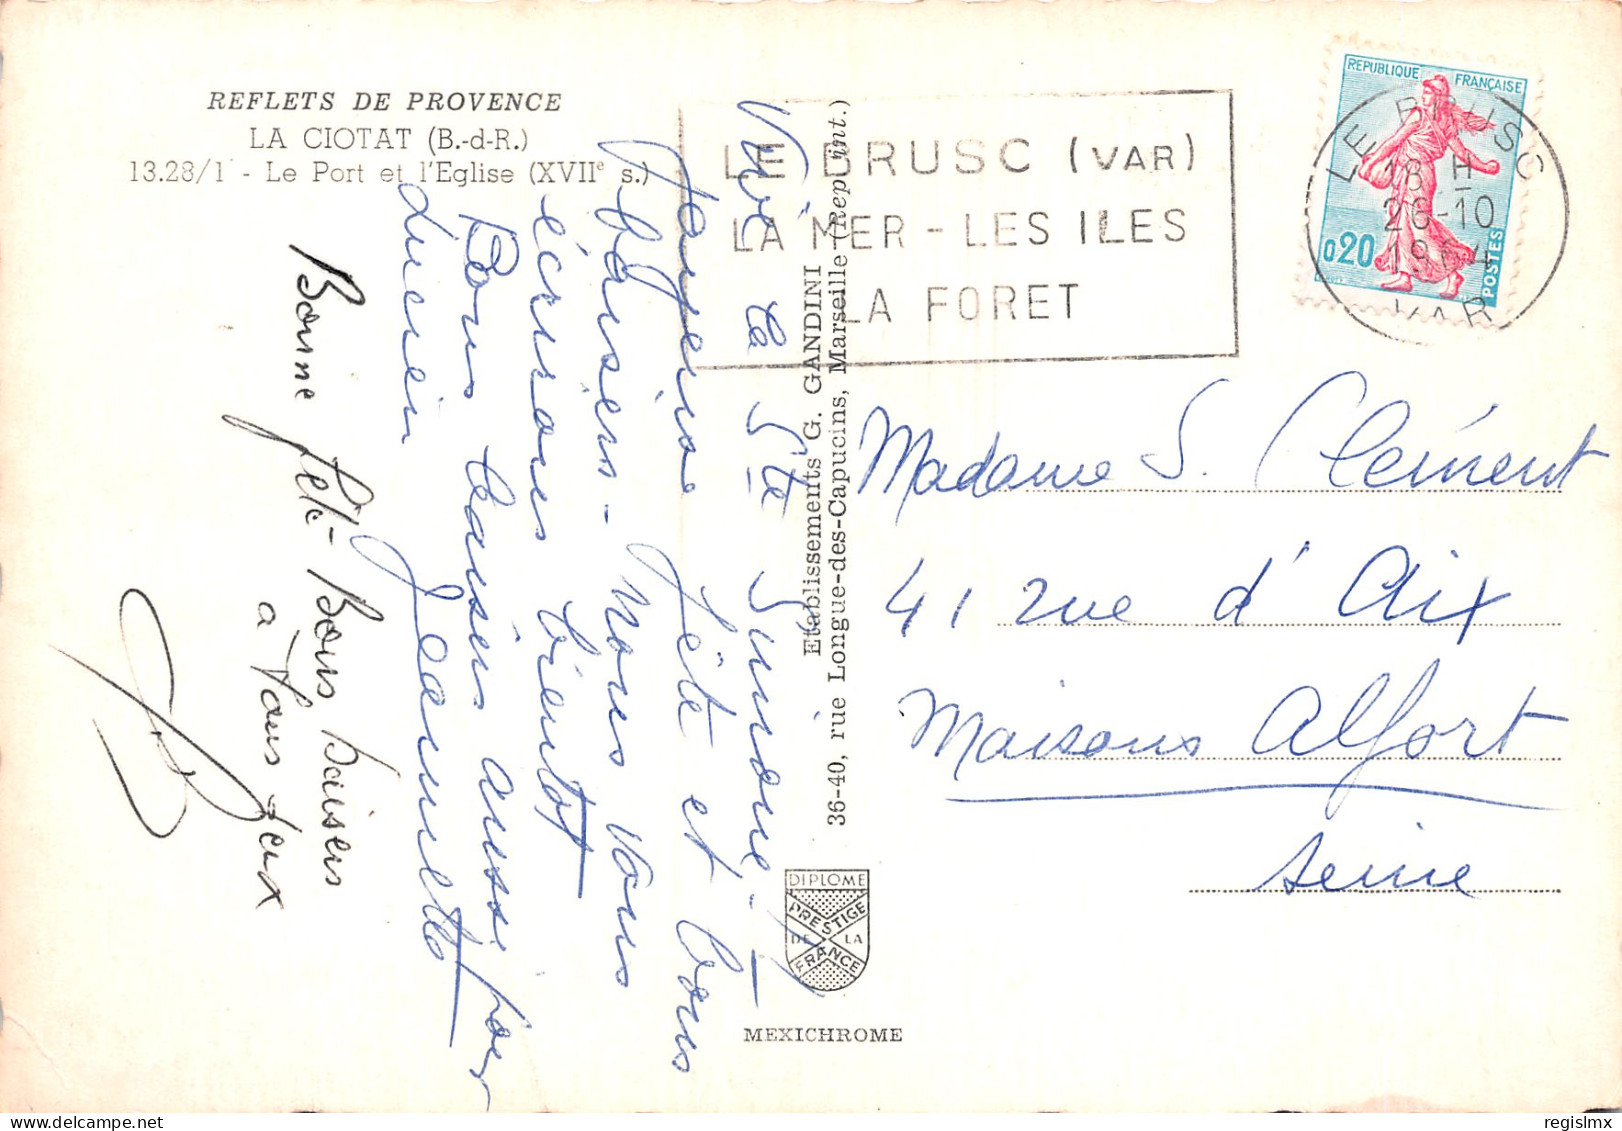 REFLETS DE PROVENCE
LA CIOTAT (B.-d-R.)
13.28/1 - Le Port et l'Eglise (XVIIe s.)
LE BRUSC (VAR)
LA MER - LES ILES
LA FORET
REPUBLIQUE FRANÇAISE
0,20
POSTES
LE BRUSC
18 H
26-10
1964
VAR
Vive la Ste Simone -
Joyeuse fête et bons
baisers - Nous vous
écrirons bientôt
Bons baisers aussi pour
Lucien Jeannette
Bonne fête - Bons baisers
a Vous deux
Etablissements G. GANDINI
36-40, rue Longue-des-Capucins, Marseille (Rep. int.)
Madame S. Clément
41 rue d'Aix
Maisons Alfort
Seine
DIPLOME
PRESTIGE
DE LA
FRANCE
MEXICHROME
https://www.delcampe.net
regislmx